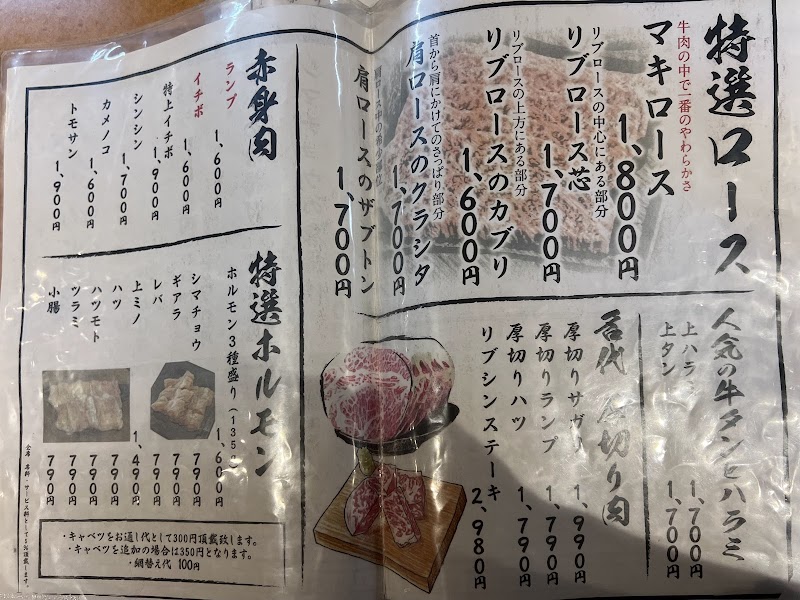 特選ロース
牛肉の中で一番のやわらかさ
マキロース
1,800円
リブロースの中心にある部分
リブロース芯
1,700円
リブロースの上方にある部分
リブロースのカブリ
1,600円
首から肩にかけてのさっぱり部分
肩ロースのクラシタ
1,700円
肩ロースのザブトン
1,700円
人気の牛タンとハラミ
上ハラミ 1,700円
上タン 1,700円
名代 厚切り肉
厚切りサガリ 1,990円
厚切りランプ 1,790円
厚切りハツ 1,790円
リブシンステーキ 2,980円
赤身肉
ランプ 1,600円
イチボ 1,600円
特上イチボ 1,900円
シンシン 1,700円
カメノコ 1,600円
トモサン 1,900円
特選ホルモン
ホルモン3種盛り(135g) 1,600円
シマチョウ 790円
ギアラ 790円
レバ 790円
上ミノ 1,490円
ハツ 790円
ハツモト 790円
ツラミ 790円
小腸 790円
・キャベツをお通し代として300円頂戴致します。
・キャベツを追加の場合は350円となります。
・網替え代 100円